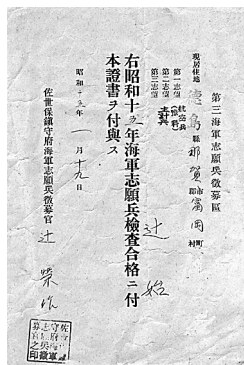 第三海軍志願兵徴募區
現居住地 徳島縣那賀郡市富岡町村
第一志望
第二志望
第三志望
辻 始
右昭和十五年海軍志願兵檢査合格ニ付
本證書ヲ付與ス
昭和十五年一月十九日
佐世保鎮守府海軍志願兵徴募官 辻 榮作